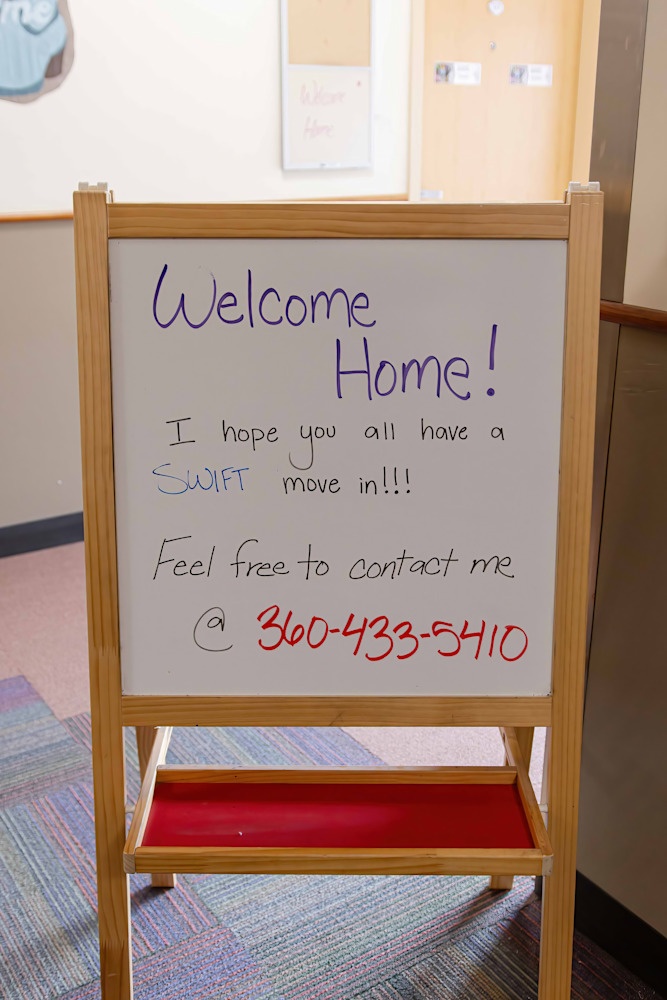 me
Welcome
Home
Welcome
Home!
I hope you all have a
SWIFT move in!!!
Feel free to contact me
@ 360-433-5410